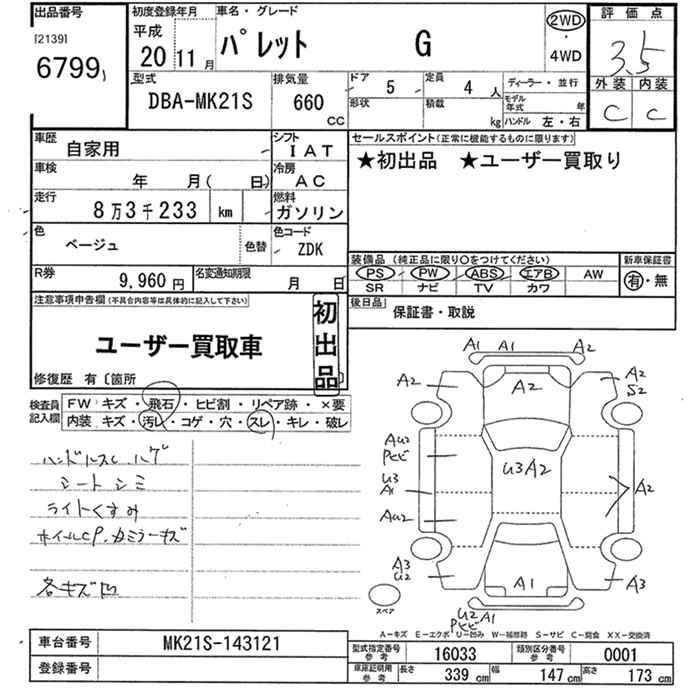 出品番号 初度登録年月 車名・グレード 評価点
[2139] 平成 パレット G 2WD 3.5
6799 20 11月 ・ 4WD 外装 内装
型式 排気量 ドア 5 定員 4 人 ディーラー・並行 C C
DBA-MK21S 660 CC 形状 積載 kg モデル年式 年
ハンドル 左・右
車歴 自家用 シフト IAT セールスポイント(正常に機能するものに限ります)
車検 年 月( 日) 冷房 AC ★初出品 ★ユーザー買取り
走行 8万3千233 km 燃料 ガソリン
色 ベージュ 色替 色コード ZDK
装備品(純正品に限り○をつけてください) 新車保証書
R券 9,960円 名変通知期限 月 日 PS PW ABS エアB AW 有・無
SR ナビ TV カワ
注意事項申告欄(不具合内容等は具体的に記入して下さい) 初出品 後日品 保証書・取説
ユーザー買取車
修復歴 有〔箇所
検査員記入欄 FW キズ・飛石・ヒビ割・リペア跡・×要
内装 キズ・汚レ・コゲ・穴・スレ・キレ・破レ
ハンドルスレ.ハゲ
シートシミ
ライトくすみ
ホイルCP.カミラーキズ
各キズ凹
A1 A1 A2
A2 A2 A2
S2
AU2
Pヒビ
U3 U3A2 A2
A1
AU2
A3 A1 A3
U2
スペア
U2 A1
Pヒビ
A-キズ E-エクボ U-凹み W-補修跡 S-サビ C-腐食 XX-交換済
車台番号 MK21S-143121 型式指定番号 参考 16033 類別区分番号 参考 0001
登録番号 車庫証明用 参考 長さ 339 cm 幅 147 cm 高さ 173 cm